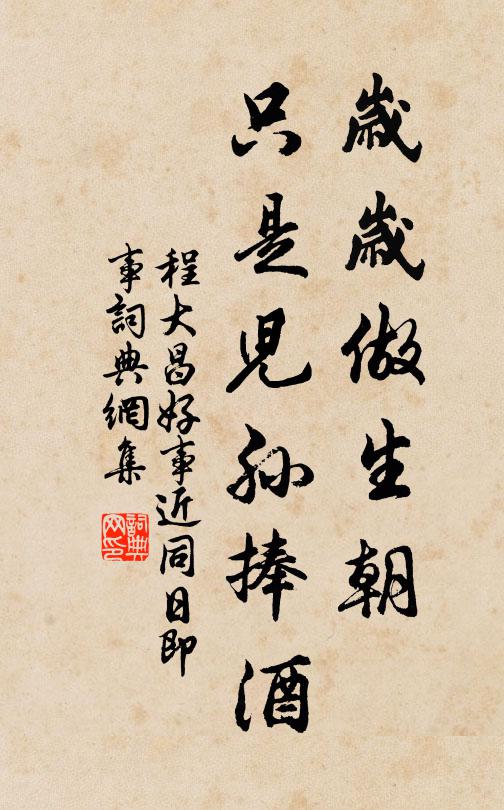 歲歲做生朝
只是兒孫捧酒
程大昌好事近同日即
事詞典網集
詞典
网印